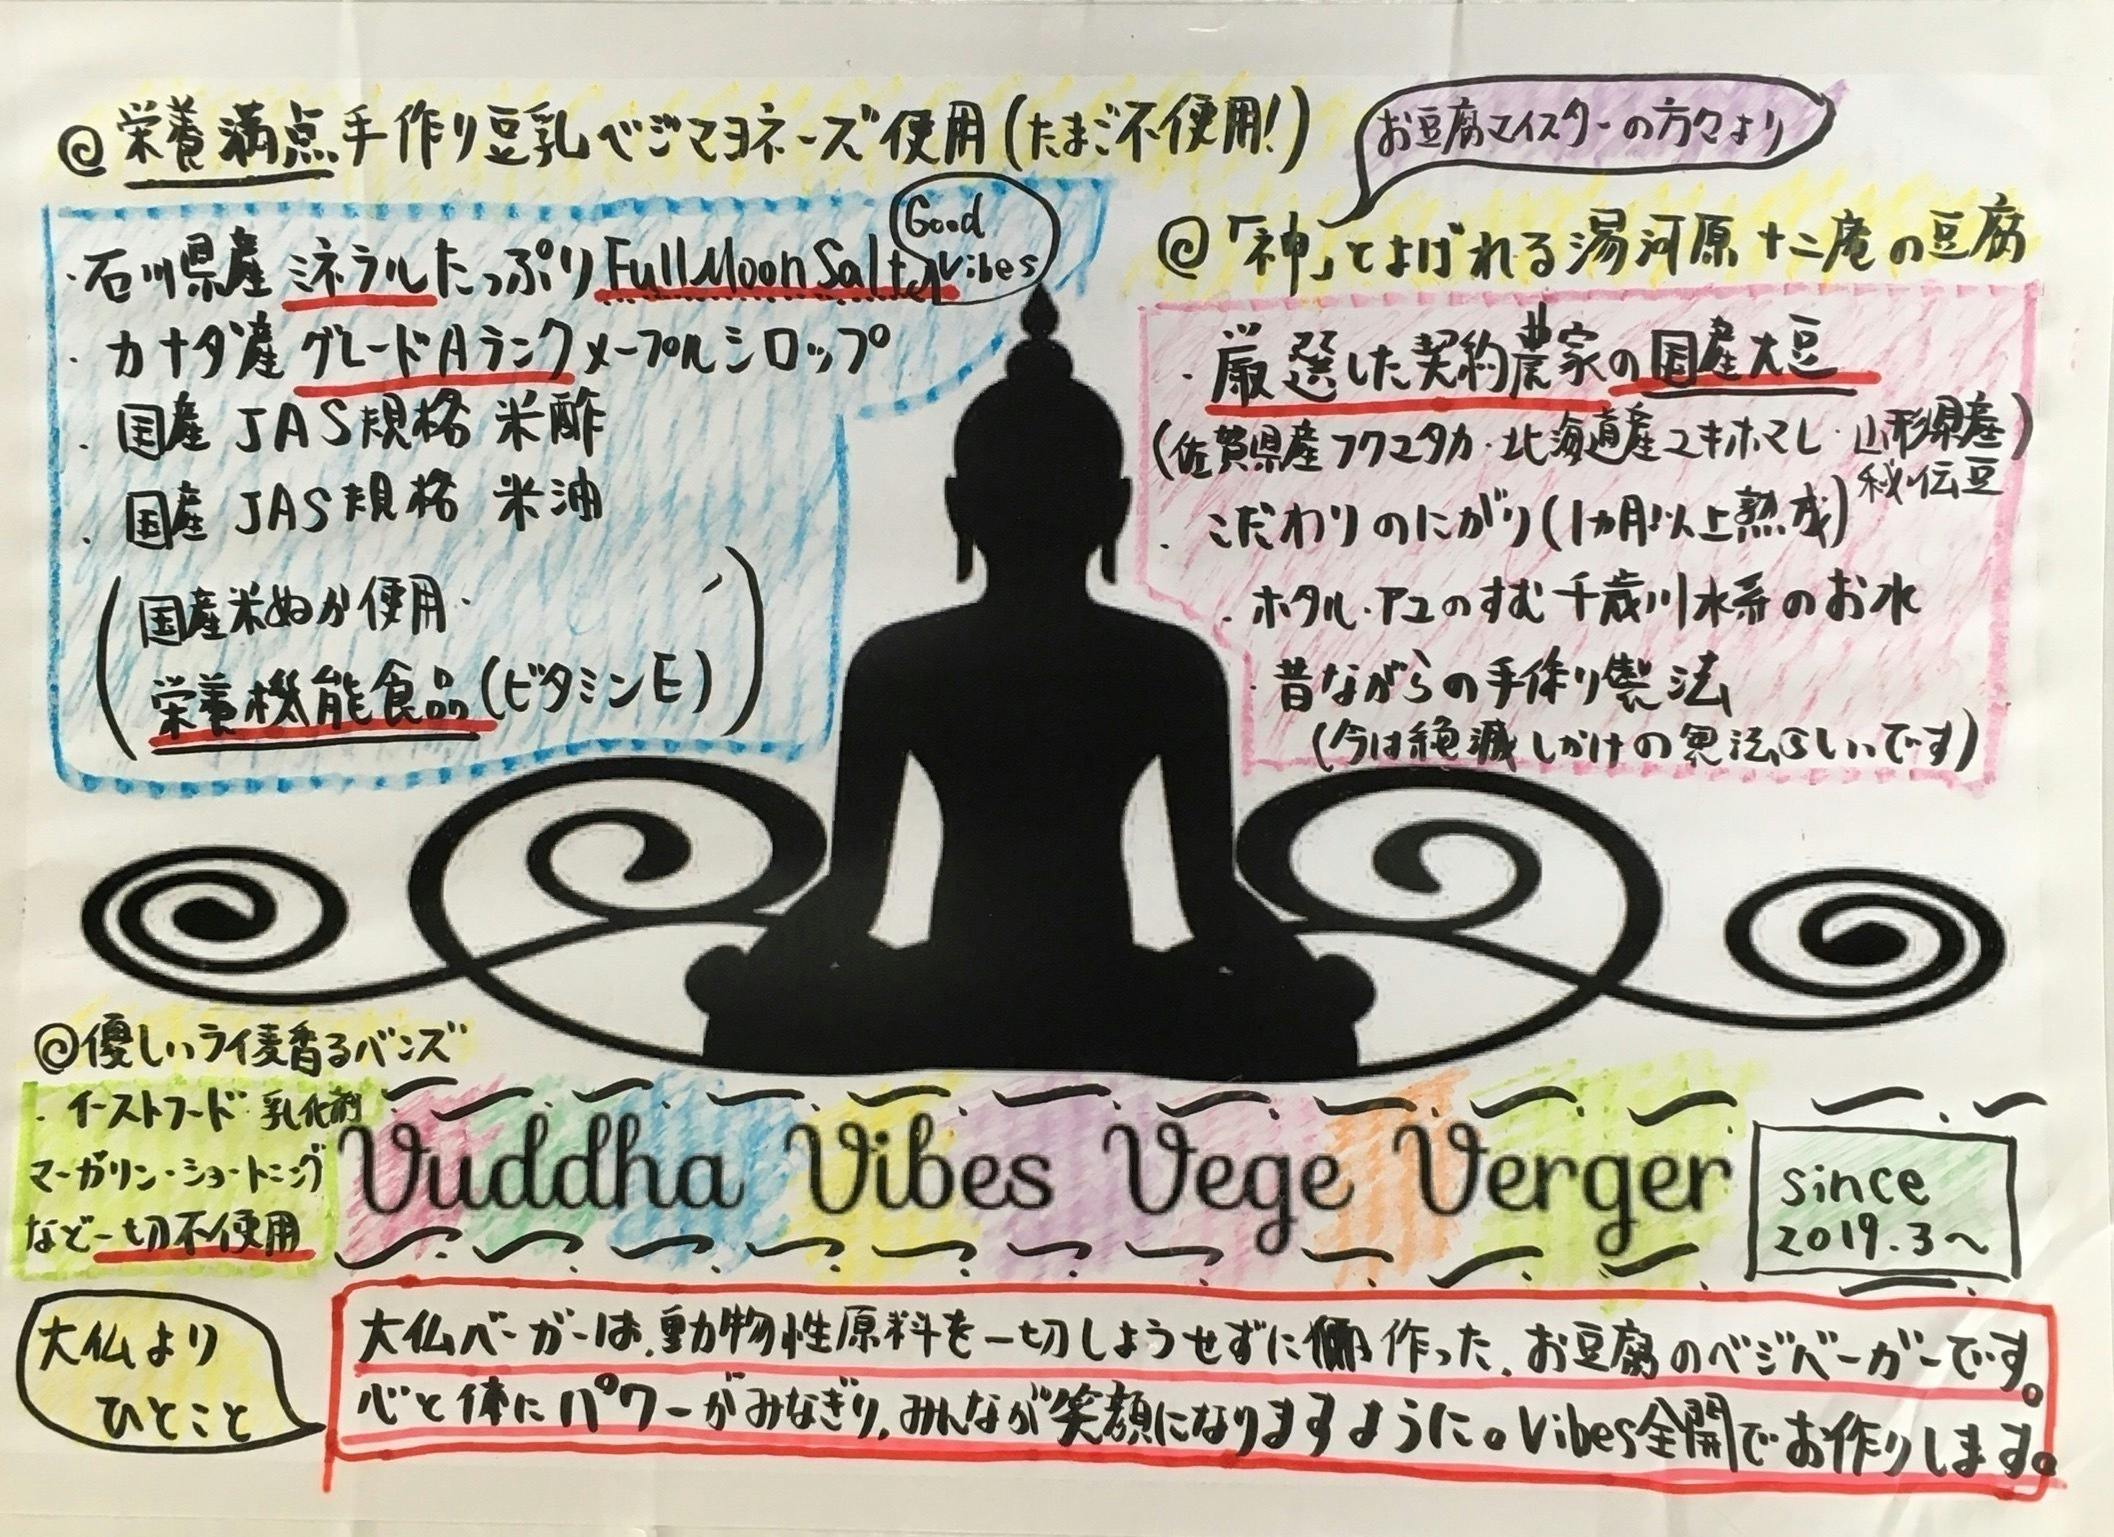 @栄養満点手作り豆乳ベジマヨネーズ使用(たまご不使用!)
・石川県産ミネラルたっぷりFullMoonSalt
Good
Vibes
・カナダ産グレードAランクメープルシロップ
・国産 JAS規格 米酢
・国産 JAS規格 米油
(国産米ぬか使用・
栄養機能食品(ビタミンE))
お豆腐マイスターの方々より
@「神」とよばれる湯河原十二庵の豆腐
・厳選した契約農家の国産大豆
(佐賀県産フクユタカ・北海道産ユキホマレ・山形県産
秘伝豆)
・こだわりのにがり(1ヵ月以上熟成)
・ホタル・アユのすむ千歳川水系のお水
・昔ながらの手作り製法
(今は絶滅しかけの製法らしいです)
@優しいライ麦香るバンズ
・イーストフード・乳化剤
マーガリン・ショートニング
など一切不使用
Vuddha Vibes Vege Verger
since
2019.3〜
大仏より
ひとこと
大仏バーガーは、動物性原料を一切しようせずに作った、お豆腐のベジバーガーです。
心と体にパワーがみなぎり、みんなが笑顔になりますように。Vibes全開でお作りします。